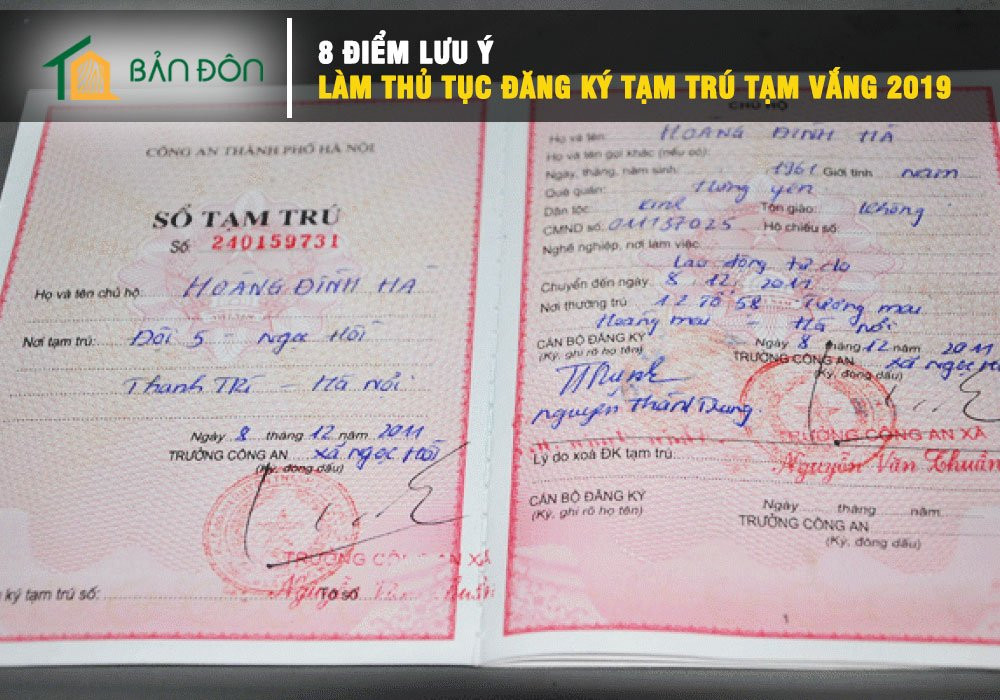 BẢN ĐÔN
8 ĐIỂM LƯU Ý
LÀM THỦ TỤC ĐĂNG KÝ TẠM TRÚ TẠM VẮNG 2019
CÔNG AN THÀNH PHỐ HÀ NỘI
SỔ TẠM TRÚ
Số: 240159731
Họ và tên chủ hộ: HOÀNG ĐÌNH HÀ
Nơi tạm trú: Đội 5 - Ngọc Hồi
Thanh Trì - Hà Nội
Ngày 8 tháng 12 năm 2011
TRƯỞNG CÔNG AN xã Ngọc Hồi
(Ký, đóng dấu)
TRƯỞNG CÔNG AN XÃ
ký tạm trú số: Tờ số
CHỦ HỘ
Họ và tên: HOÀNG ĐÌNH HÀ
Họ và tên gọi khác (nếu có):
Ngày, tháng, năm sinh: 1961 Giới tính: nam
Quê quán: Hưng yên
Dân tộc: Kinh Tôn giáo: không
CMND số: 011157025 Hộ chiếu số:
Nghề nghiệp, nơi làm việc:
Lao động tự do
Chuyển đến ngày 8.12.2011
Nơi thường trú: 12 Tổ 58 Tương mai
Hoàng mai - Hà nội
Ngày 8 tháng 12 năm 2011
CÁN BỘ ĐĂNG KÝ
TRƯỞNG CÔNG AN xã Ngọc Hồi
(Ký, ghi rõ họ tên)
(Ký, đóng dấu)
TRƯỞNG CÔNG AN XÃ
Nguyễn Văn Thuần
Lý do xoá ĐK tạm trú:
Ngày tháng năm
CÁN BỘ ĐĂNG KÝ
TRƯỞNG CÔNG AN
(Ký, ghi rõ họ tên)
(Ký, đóng dấu)
1